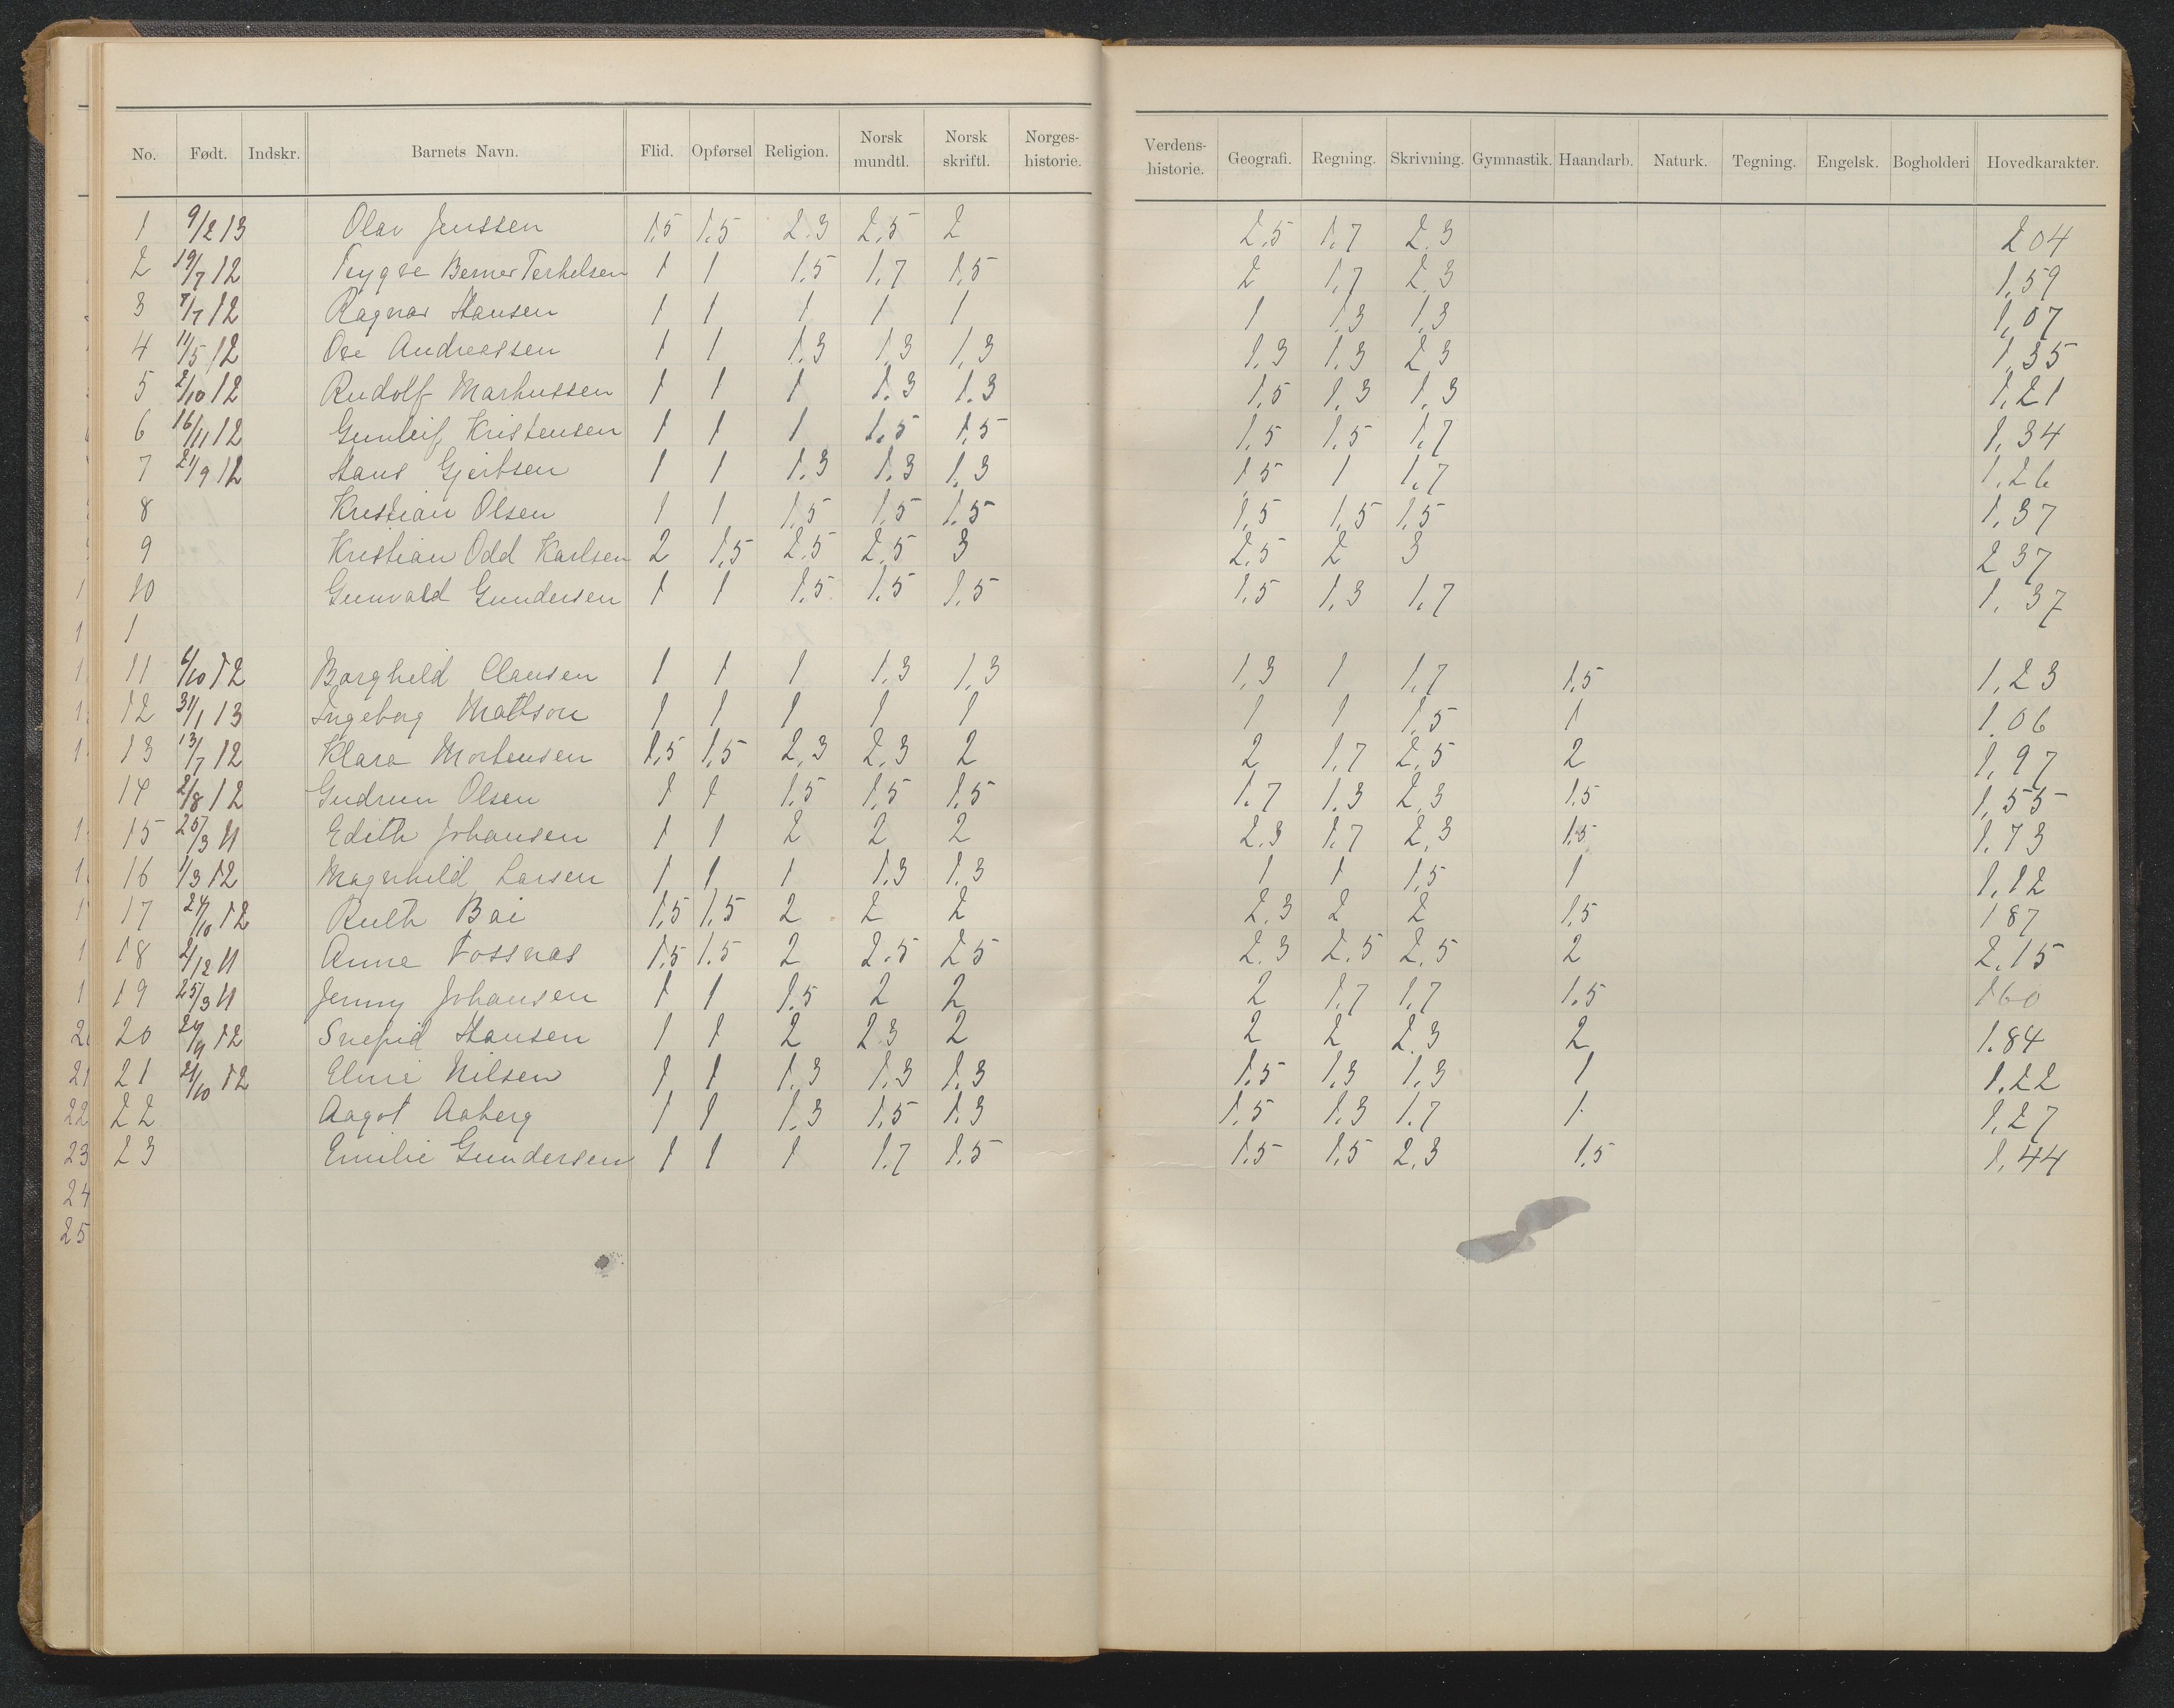 No. Født. Indskr. Barnets Navn. Flid. Opførsel Religion. Norsk mundtl. Norsk skriftl. Norges-historie. Verdens-historie. Geografi. Regning. Skrivning. Gymnastik. Haandarb. Naturk. Tegning. Engelsk. Bogholderi Hovedkarakter.
1 9/2 13 Olav Jenssen 1,5 1,5 2,3 2,5 2 2,5 1,7 2,3 2 04
2 19/7 12 Trygve Berner Terkelsen 1 1 1,5 1,7 1,5 2 1,7 2,3 1,59
3 7/7 12 Ragnar Hansen 1 1 1 1 1 1 1,3 1,3 1,07
4 11/5 12 Ove Andreassen 1 1 1,3 1,3 1,3 1,3 1,3 2,3 1,35
5 2/10 12 Rudolf Markussen 1 1 1 1,3 1,3 1,5 1,3 1,3 1,21
6 16/11 12 Gunleif Kristensen 1 1 1 1,5 1,5 1,5 1,5 1,7 1,34
7 21/9 12 Hans Gjertsen 1 1 1,3 1,3 1,3 1,5 1 1,7 1,26
8 Kristian Olsen 1 1 1,5 1,5 1,5 1,5 1,5 1,5 1,37
9 Kristian Odd Karlsen 2 1,5 2,5 2,5 3 2,5 2 3 2 37
10 Gunvald Gundersen 1 1 1,5 1,5 1,5 1,5 1,3 1,7 1,37
1
11 6/10 12 Borghild Clausen 1 1 1 1,3 1,3 1,3 1 1,7 1,5 1,23
12 31/1 13 Ingeborg Mattson 1 1 1 1 1 1 1 1,5 1 1,06
13 13/7 12 Klara Mortensen 1,5 1,5 2,3 2,3 2 2 1,7 2,5 2 1,97
14 2/8 12 Gudrun Olsen 1 1 1,5 1,5 1,5 1,7 1,3 2,3 1,5 1,55
15 25/3 11 Edith Johansen 1 1 2 2 2 2,3 1,7 2,3 1,5 1,73
16 1/3 12 Magnhild Larsen 1 1 1 1,3 1,3 1 1 1,5 1 1,12
17 24/10 12 Ruth Boi 1,5 1,5 2 2 2 2,3 2 2 1,5 1 87
18 2/12 11 Anna Fossnas 1,5 1,5 2 2,5 2 5 2,3 2,5 2,5 2 2,15
19 25/3 11 Jenny Johansen 1 1 1,5 2 2 2 1,7 1,7 1,5 1 60
20 24/9 12 Hansen 1 1 2 2 3 2 2 2 2,3 2 1.84
21 21/10 12 Nilsen 1 1 1,3 1,3 1,3 1,5 1,3 1,3 1 1,22
22 Aagot Aaberg 1 1 1,3 1,5 1,3 1,5 1,3 1,7 1 1,27
23 Emilie Gundersen 1 1 1 1,7 1,5 1,5 1,5 2,3 1,5 1,44